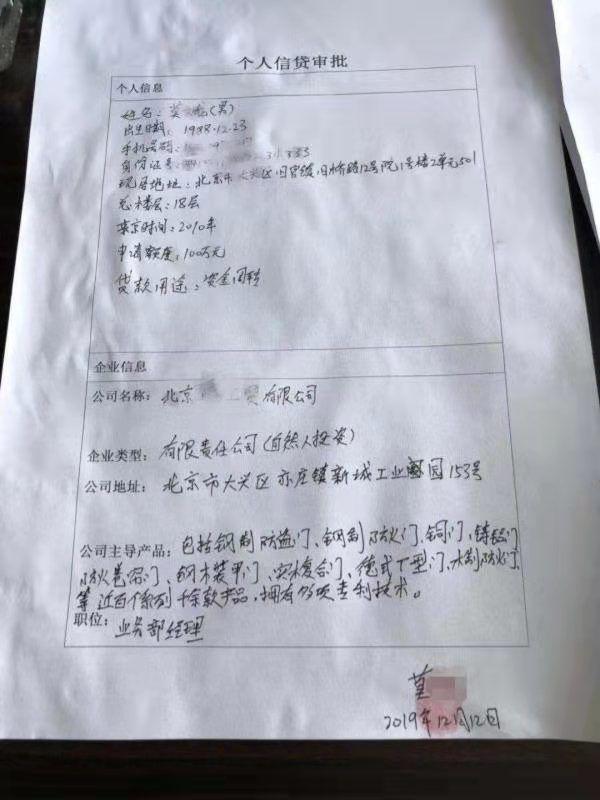 个人信贷审批
个人信息
姓名: (男)
出生日期: 1988.12.23
手机号码:
身份证号:
现居地址: 北京市大兴区旧宫镇旧桥路12号院1号楼2单元501
总楼层: 18层
来京时间: 2010年
申请额度: 100万元
贷款用途: 资金周转
企业信息
公司名称: 北京 工贸有限公司
企业类型: 有限责任公司(自然人投资)
公司地址: 北京市大兴区亦庄镇新城工业园153号
公司主导产品: 包括钢制防盗门、钢制防火门、铜门、铸铝门
防火卷帘门、钢木装甲门、实木复合门、德式T型门、木制防火门、
等近百个系列千余款产品,拥有多项专利技术。
职位: 业务部经理
2019年12月12日